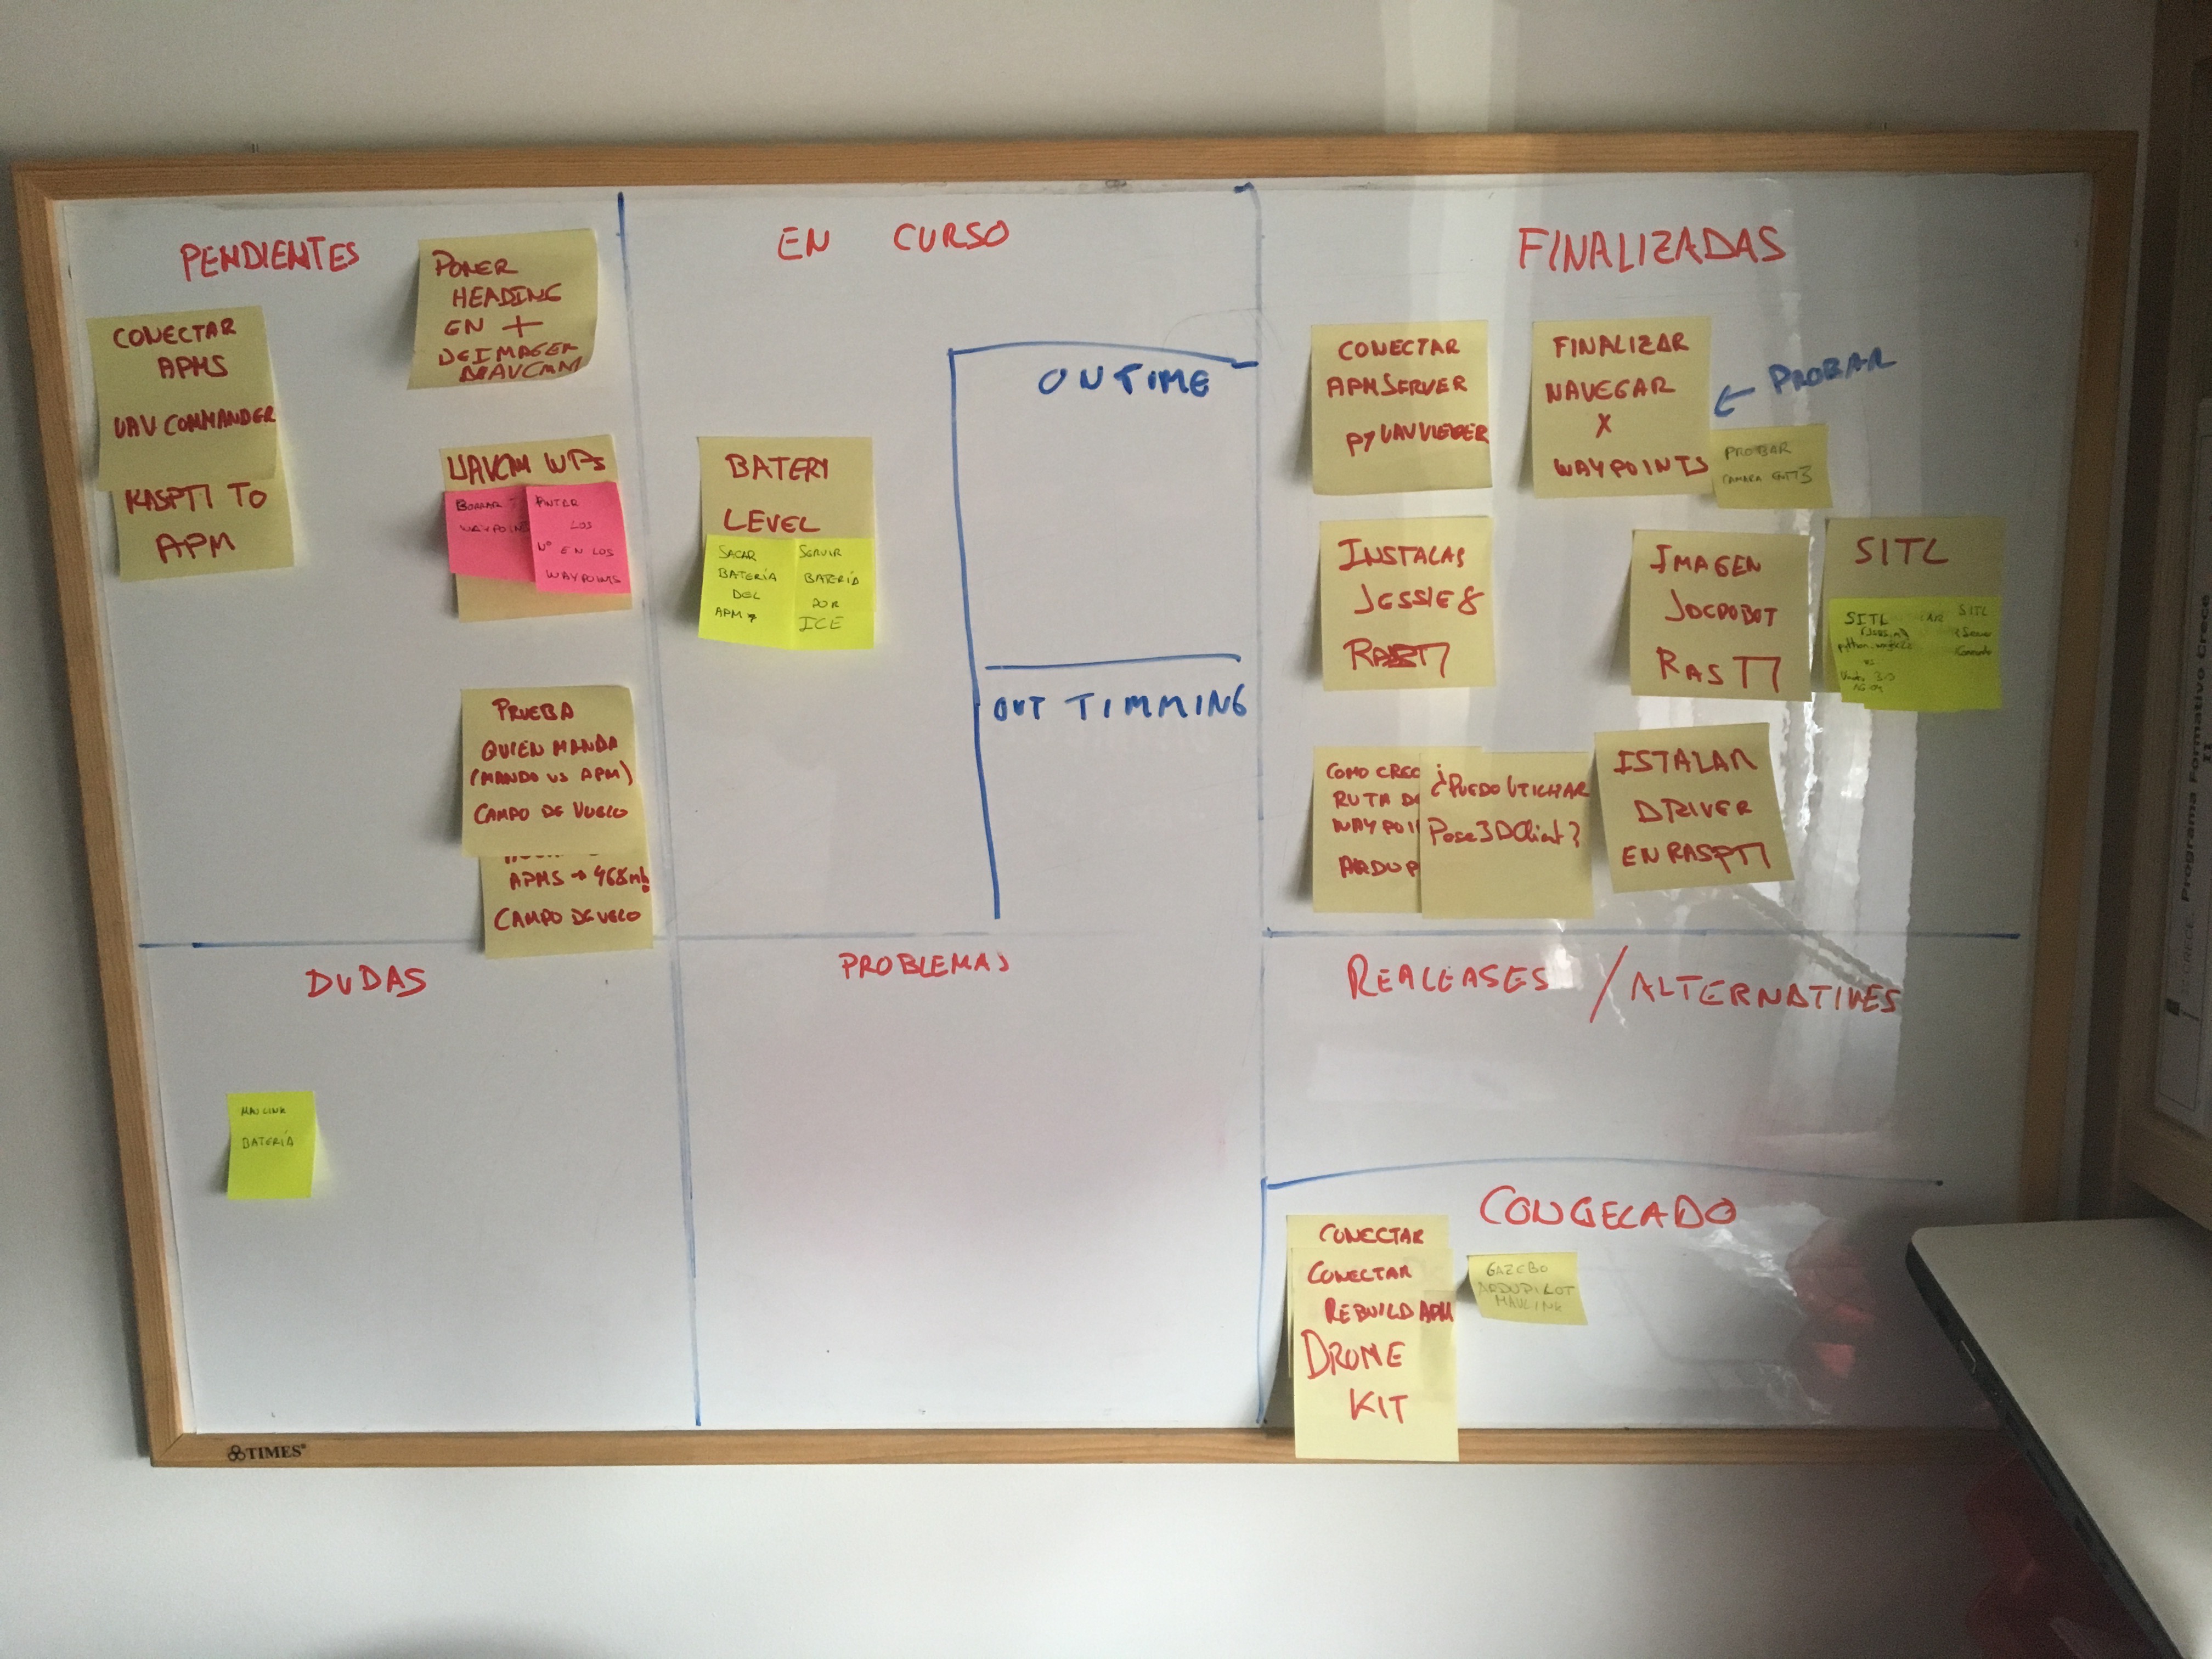 PENDIENTES
CONECTAR
APMS
UAV COMMANDER
RASPTI TO
APM
PONER
HEADING
EN +
DE IMAGEN
UAVCM WPs
BORRAR
WAYPOINTS
PINTAR
LOS
Nº EN LOS
WAYPOINTS
PRUEBA
QUIEN MANDA
(MANDO VS APM)
CAMPO DE VUELO
APMS → 468mh
CAMPO DE VUELO
EN CURSO
BATERY
LEVEL
SACAR
BATERÍA
DEL
APM
SERVIR
BATERÍA
POR
ICE
ON TIME
OUT TIMMING
FINALIZADAS
CONECTAR
APMSERVER
PY UAVVIEWER
FINALIZAR
NAVEGAR
X
WAYPOINTS
← PROBAR
PROBAR
CAMARA
INSTALAS
JESSIE 8
RASTI
IMAGEN
JDEROBOT
RASTI
SITL
SITL
python
VS
16.04
SITL
Server
COMO CREO
RUTA DE
WAYPOI
ARDUP
¿PUEDO UTILIZAR
Pose3DClient?
ISTALAR
DRIVER
EN RASPTI
DUDAS
MAVLINK
BATERÍA
PROBLEMAS
REALEASES / ALTERNATIVES
CONGELADO
CONECTAR
CONECTAR
REBUILD APM
DRONE
KIT
GAZEBO
ARDUPILOT
MAVLINK
TIMES
CRECE. Programa Formativo Crece
II